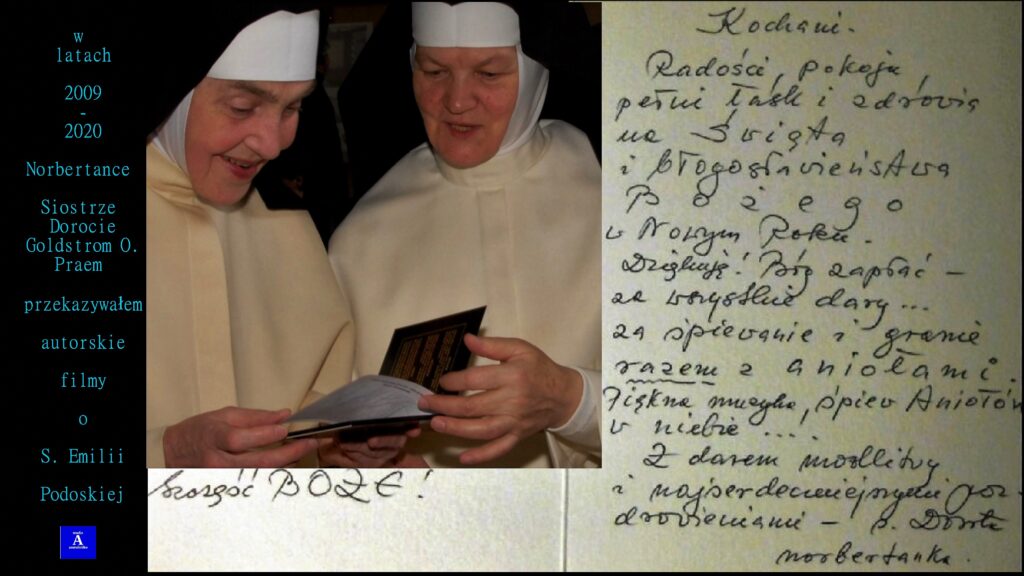 w
latach
2009
-
2020
Norbertance
Siostrze
Dorocie
Goldstrom O.
Praem
przekazywałem
autorskie
filmy
o
S. Emilii
Podoskiej
A
Kochani.
Radości, pokoju
pełni łask i zdrowia
na Święta
i błogosławieństwa
Bożego
w Nowym Roku.
Dziękuję! Bóg zapłać –
za wszystkie dary...
za śpiewanie i granie
razem z aniołami.
Piękna muzyka, śpiew Aniołów
w niebie ....
Z darem modlitwy
i najserdeczniejszymi poz-
drowieniami – s. Dorota
norbertanka.
Szczęść BOŻE!